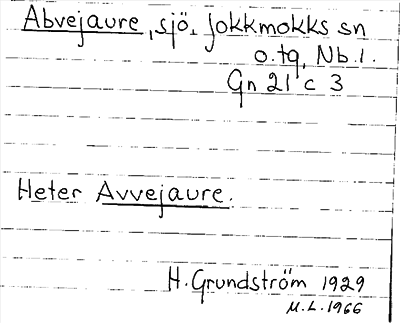 Abvejaure, sjö, Jokkmokks sn
o. tg, Nb. l.
Gn 21 c 3
Heter Avvejaure.
H. Grundström 1929
M.L. 1966